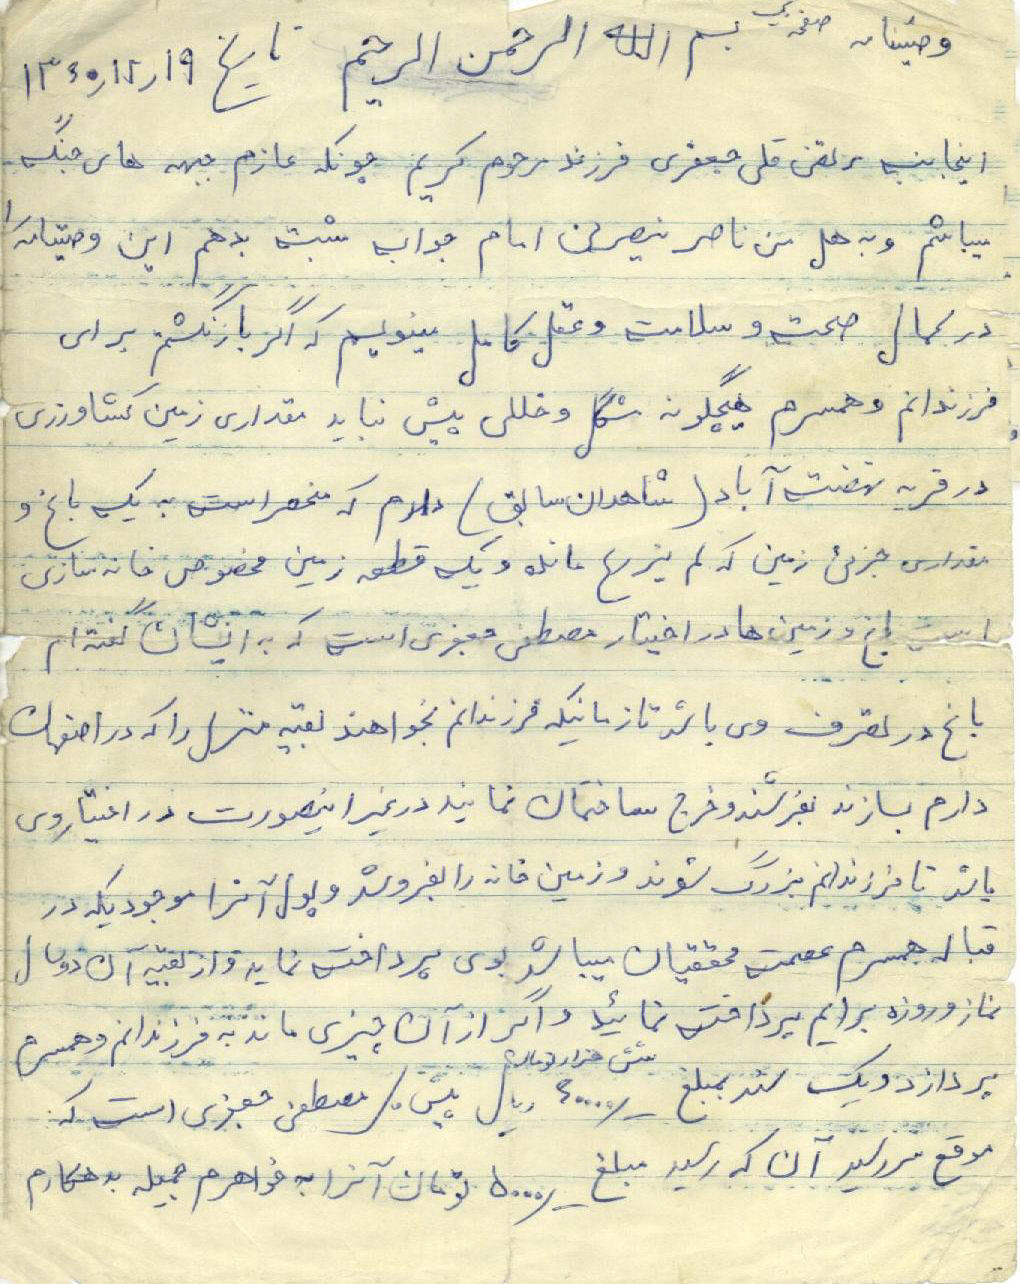 وصیتنامه صفحه یک بسم الله الرحمن الرحیم تاریخ ۱۳۶۰٫۱۲٫۱۹
اینجانب مرتضی قلی جعفری فرزند مرحوم کریم چونکه عازم جبهه های جنگ
میباشم و به هل من ناصر ینصرنی امام جواب مثبت بدهم این وصیتنامه را
در کمال صحت و سلامت و عقل کامل مینویسم که اگر بازنگشتم برای
فرزندانم و همسرم هیچگونه مشکل و خللی پیش نیاید مقداری زمین کشاورزی
در قریه نهضت آباد (شاهدان سابق) دارم که منحصر است به یک باغ و
مقداری جزئی زمین که لم یزرع مانده و یک قطعه زمین مخصوص خانه سازی
است باغ و زمین ها در اختیار مصطفی جعفری است که به ایشان گفته ام
باغ در تصرف وی باشد تا زمانیکه فرزندانم بخواهند بقیه منزل را که در اصفهان
دارم بسازند بفروشند و خرج ساختمان نمایند در غیر اینصورت در اختیار وی
باشد تا فرزندانم بزرگ شوند و زمین خانه را بفروشد و پول آنرا موجودیکه در
قباله همسرم عصمت محققیان میباشد بوی پرداخت نماید و از بقیه آن دو سال
نماز و روزه برایم پرداخت نمائید و اگر از آن چیزی ماند به فرزندانم و همسرم
شش هزار تومان
بپردازد و یک سند بمبلغ ۶۰۰۰۰/ ریال پیش مصطفی جعفری است که
موقع سررسید آن که رسید مبلغ ۵۰۰۰/ تومان آنرا به خواهرم جمیله بدهکارم